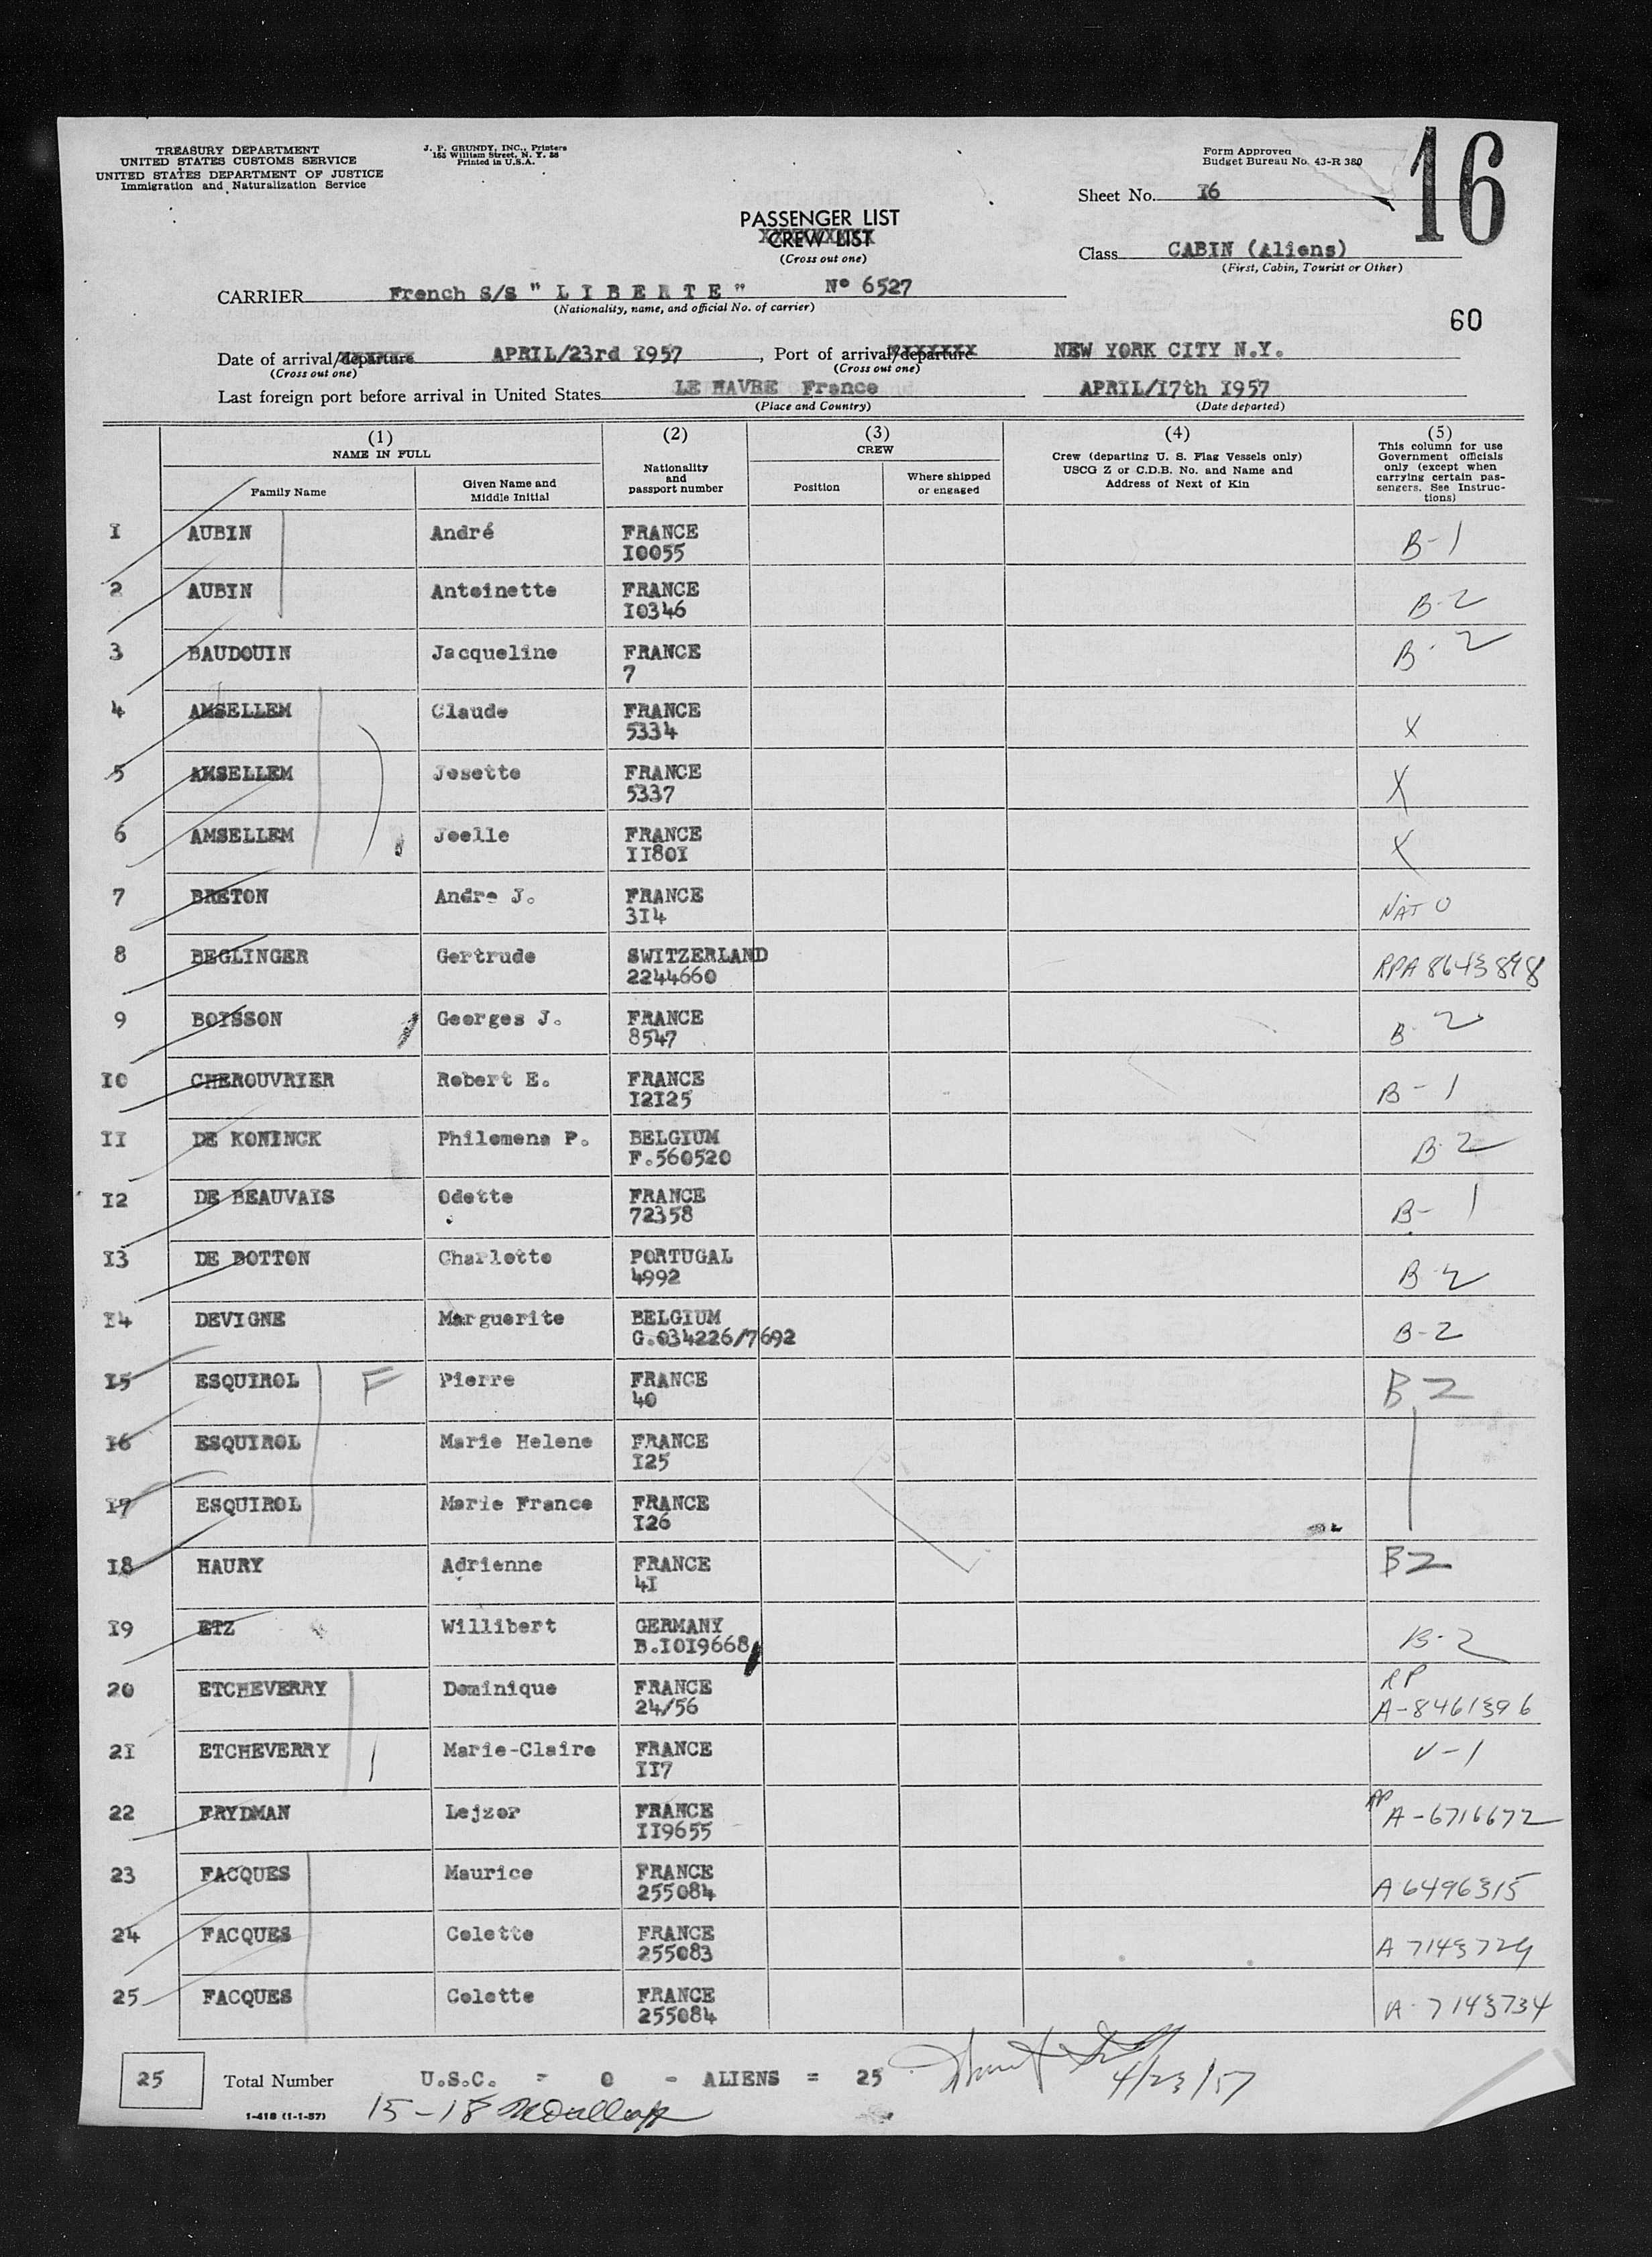 TREASURY DEPARTMENT
UNITED STATES CUSTOMS SERVICE
UNITED STATES DEPARTMENT OF JUSTICE
Immigration and Naturalization Service
J. P. GRUNDY, INC., Printers
165 William Street, N. Y. 38
Printed in U.S.A.
Form Approved
Budget Bureau No. 43-R 380
16
Sheet No. I6
PASSENGER LIST
CREW LIST
(Cross out one)
Class CABIN (Aliens)
(First, Cabin, Tourist or Other)
CARRIER French S/S " L I B E R T E " N° 6527
(Nationality, name, and official No. of carrier)
60
Date of arrival/departure APRIL/23rd I957, Port of arrival/departure NEW YORK CITY N.Y.
(Cross out one) (Cross out one)
Last foreign port before arrival in United States LE HAVRE France APRIL/I7th I957
(Place and Country) (Date departed)
(1) NAME IN FULL
Family Name
Given Name and Middle Initial
(2) Nationality and passport number
(3) CREW
Position
Where shipped or engaged
(4) Crew (departing U. S. Flag Vessels only) USCG Z or C.D.B. No. and Name and Address of Next of Kin
(5) This column for use Government officials only (except when carrying certain passengers. See Instructions)
I AUBIN André FRANCE B-1
I0055
2 AUBIN Antoinette FRANCE B-2
I0346
3 BAUDOUIN Jacqueline FRANCE B-2
7
4 AMSELLEM Claude FRANCE X
5334
5 AMSELLEM Josette FRANCE X
5337
6 AMSELLEM Joelle FRANCE X
II80I
7 BRETON Andre J. FRANCE NATO
3I4
8 BEGLINGER Gertrude SWITZERLAND RPA 8643898
2244660
9 BOISSON Georges J. FRANCE B-2
8547
I0 CHEROUVRIER Robert E. FRANCE B-1
I2I25
II DE KONINCK Philomena P. BELGIUM B-2
F.560520
I2 DE BEAUVAIS Odette FRANCE B-1
72358
I3 DE BOTTON Charlotte PORTUGAL B-2
4992
I4 DEVIGNE Marguerite BELGIUM B-2
G.034226/7692
I5 ESQUIROL F Pierre FRANCE B2
40
I6 ESQUIROL Marie Helene FRANCE
I25
I7 ESQUIROL Marie France FRANCE
I26
I8 HAURY Adrienne FRANCE B2
4I
I9 ETZ Willibert GERMANY B-2
B.I0I9668
20 ETCHEVERRY Dominique FRANCE RP
24/56 A-8461396
2I ETCHEVERRY Marie-Claire FRANCE V-1
II7
22 FRYDMAN Lejzor FRANCE RP A-6716672
II9655
23 FACQUES Maurice FRANCE A6496315
255084
24 FACQUES Colette FRANCE A 7143729
255083
25 FACQUES Colette FRANCE A-7143734
255084
25 Total Number U.S.C. = 0 - ALIENS = 25
4/23/57
I-418 (1-1-57) 15-18